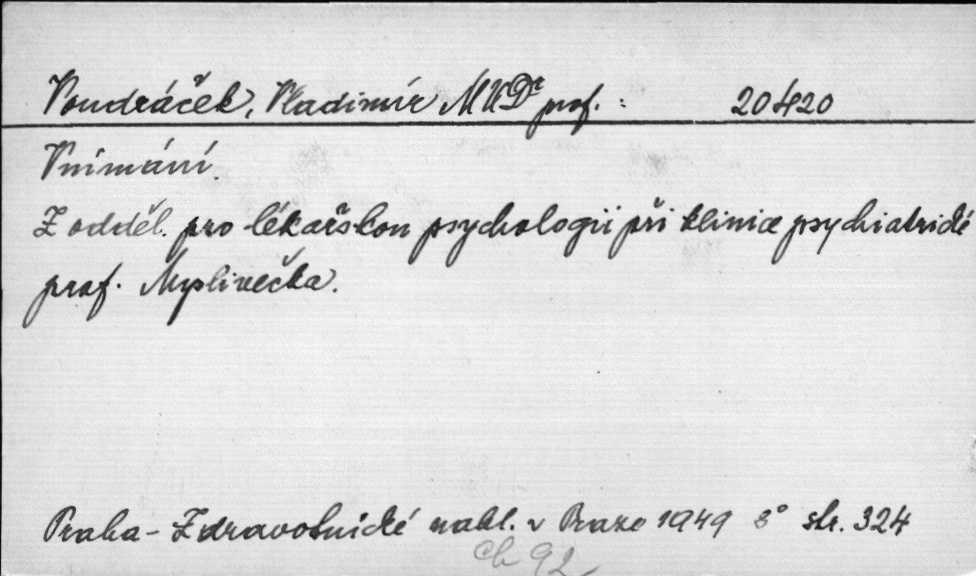 Vondráček, Vladimír MUDr prof. : 20420
Vnímání.
Z odděl. pro lékařskou psychologii při klinice psychiatrické
prof. Myslivečka.
Praha - Zdravotnické nakl. v Praze 1949 8° str. 324
ch 92